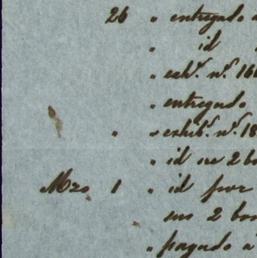 26 " entregado a
" id "
" exhb. nº. 166
" entregado
" " exhibt. nº. 18
" id
Mzo 1 " id por
sus 2 bon
" pagado a